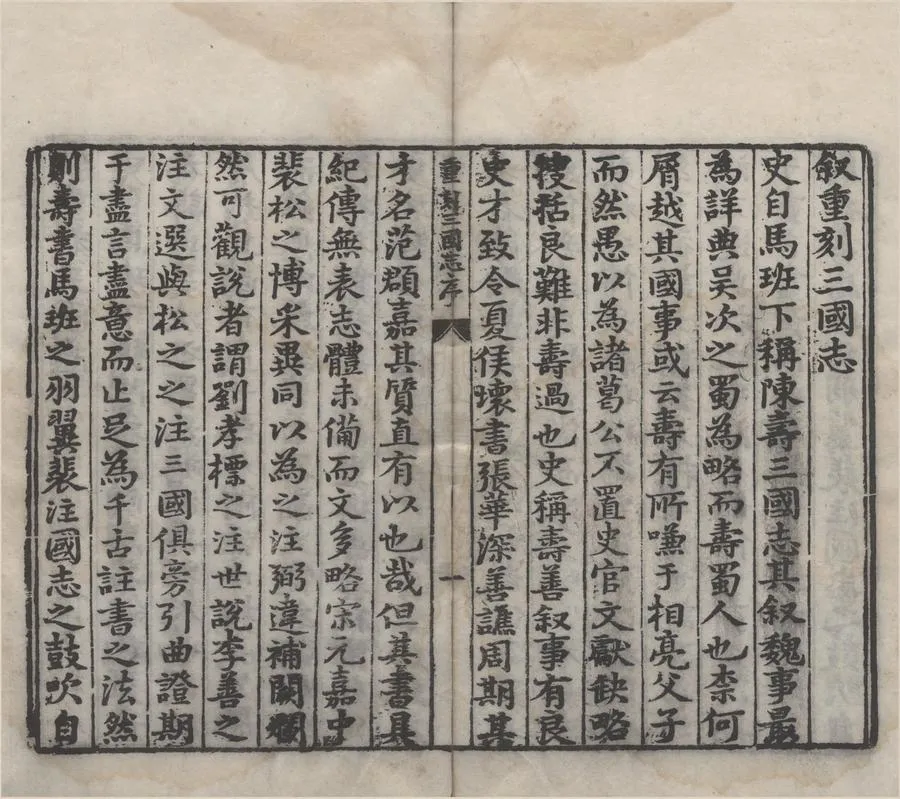 叙重刻三國志
史自馬班下稱陳壽三國志其叙魏事最
為詳典吴次之蜀為略而壽蜀人也柰何
屑越其國事或云壽有所嗛于相亮父子
而然愚以為諸葛公不置史官文獻缺略
搜括良難非壽過也史稱壽善叙事有良
史才致令夏侯壞書張華深善譙周期其
重刻三國志序
一
才名范頵嘉其質直有以也哉但其書具
紀傳無表志體未備而文多略宗元嘉中
裴松之博采異同以為之注弼違補闕
然可觀說者謂劉孝標之注世說李善之
注文選與松之之注三國俱旁引曲證期
于盡言盡意而止足為千古註書之法然
則壽書馬班之羽翼裴注國志之鼓吹自